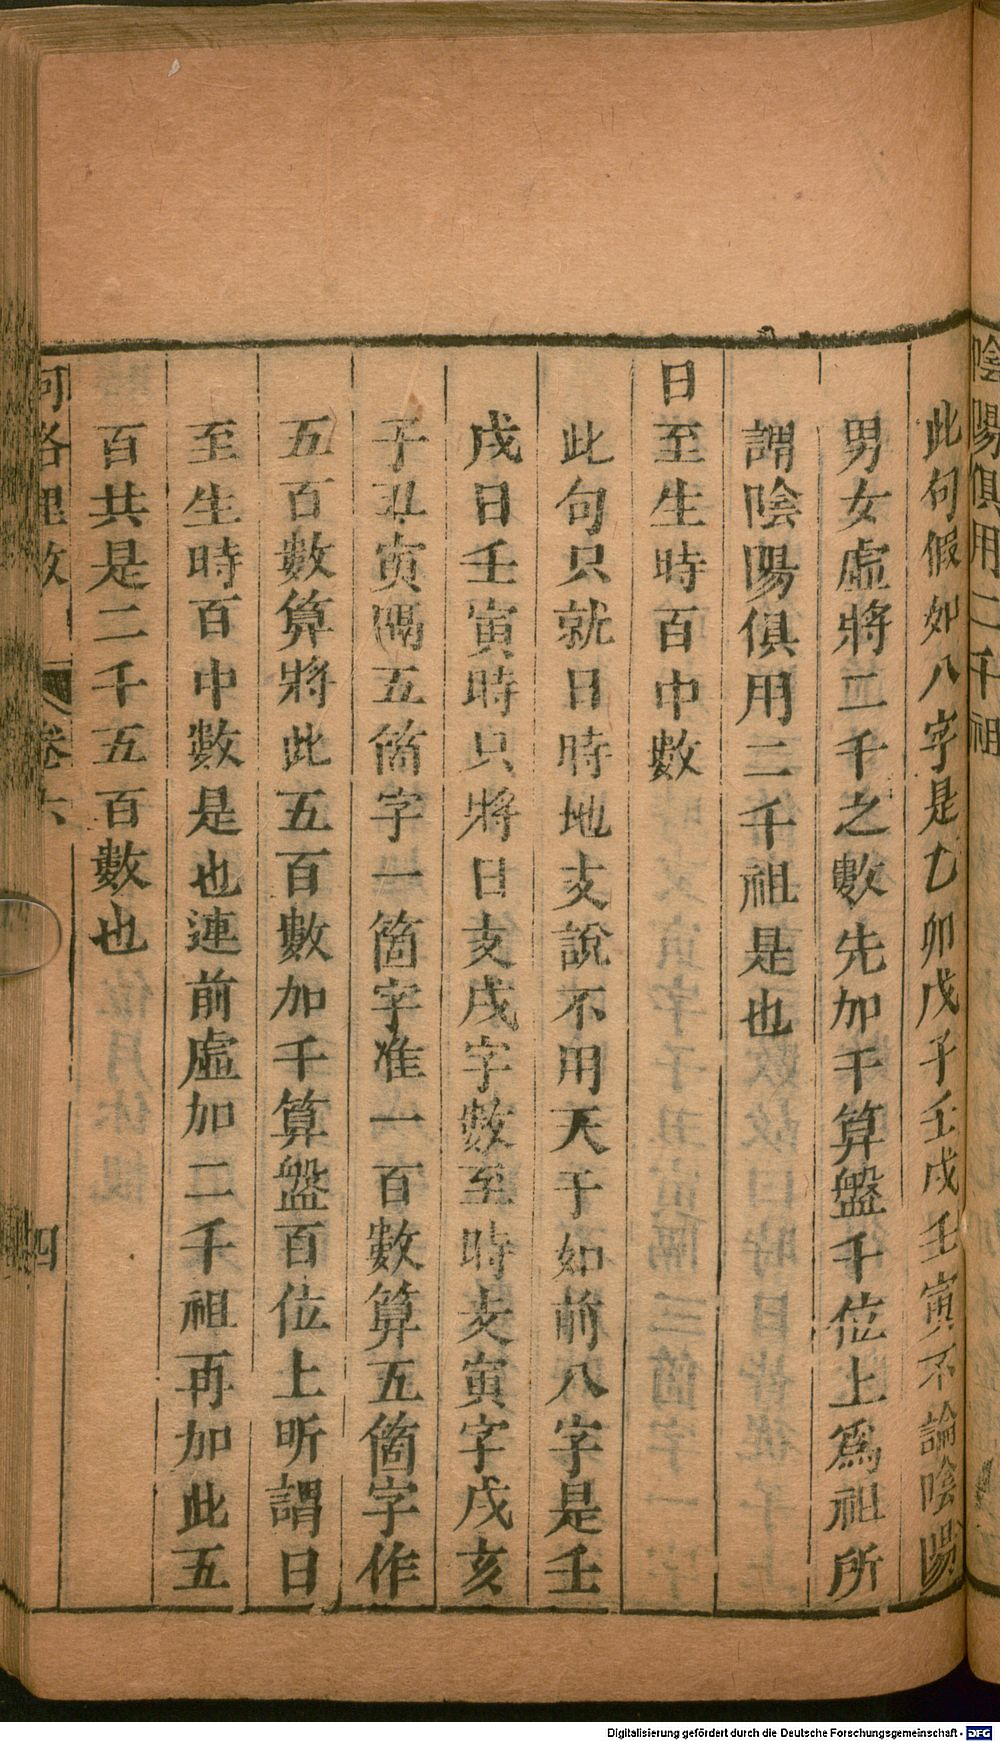 陰陽俱用二千祖
此句假如八字是乙卯戊子壬戌壬寅不論陰陽
男女虛將二千之數先加于算盤千位上爲祖所
謂陰陽俱用二千祖是也
日至生時百中數
此句只就日時地支說不用天干如前八字是壬
戌日壬寅時只將日支戌字數至時支寅字戌亥
子丑寅隔五箇字一箇字准一百數算五箇字作
五百數算將此五百數加千算盤百位上所謂日
至生時百中數是也連前虛加二千祖再加此五
百共是二千五百數也
河洛理數 卷六 四
Digitalisierung gefördert durch die Deutsche Forschungsgemeinschaft - DFG